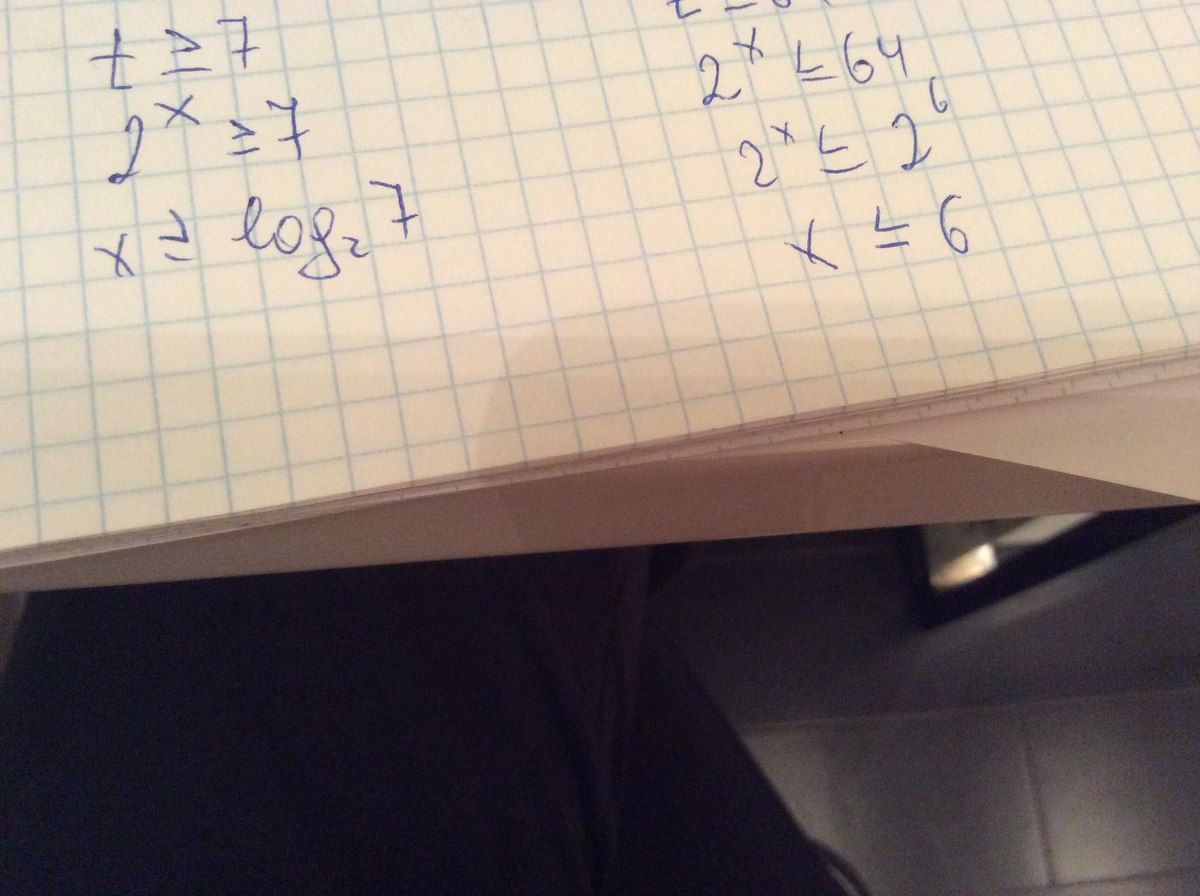 t ≥ 7
2^x ≥ 7
x ≥ log₂ 7
2^x ≤ 64
2^x ≤ 2^6
x ≤ 6